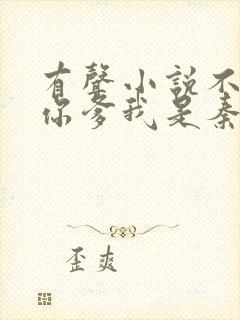 有聲小說不
你爹我是秦
歪爽